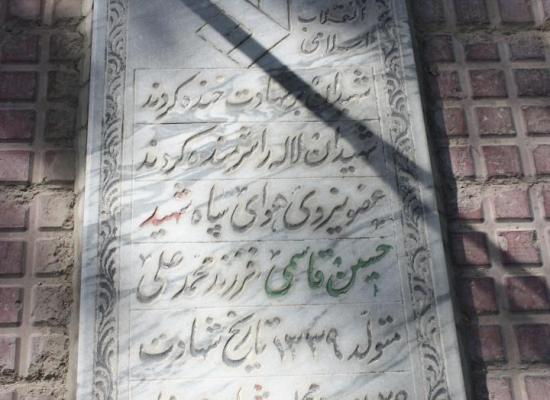 انقلاب
اسلامی
شهیدان بر شهادت خنده کردند
شهیدان لاله را شرمنده کردند
عضو نیروی هوای سپاه شهید
حسین قاسمی فرزند محمد علی
متولد ۱۳۳۹ تاریخ شهادت